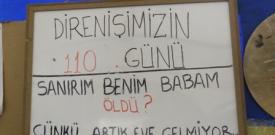 DİRENİŞİMİZİN
110. GÜNÜ
SANIRIM BENİM BABAM
ÖLDÜ?
ÇÜNKÜ ARTIK EVE GELMİYOR